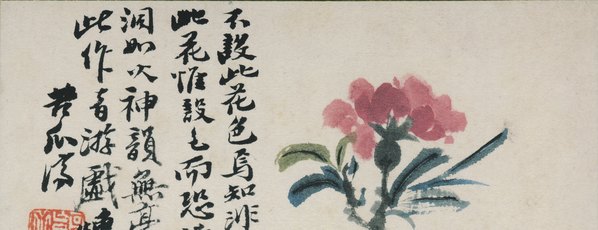 不設此花色焉知非
此花惟設色而恐
如以神韻無
此作游戲
苦瓜濟